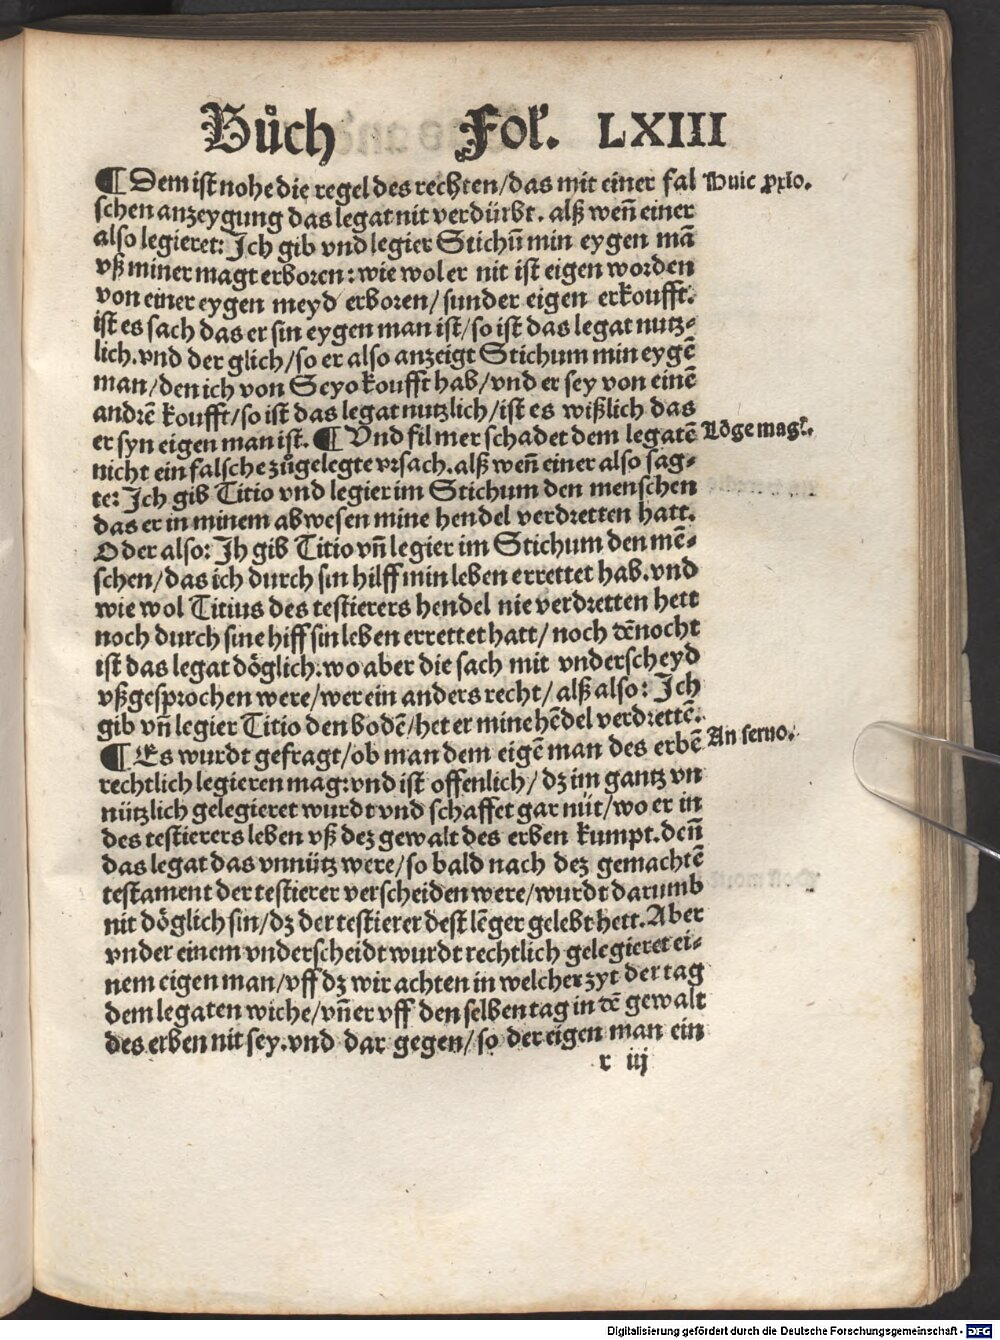 Bůch Fol. LXIII
¶ Dem ist nohe die regel des rechten/das mit einer fal
Huic ꝓxio.
schen anzeygung das legat nit verdürbt. alß weñ einer
also legieret: Ich gib vnd legier Stichū min eygen mā
vß miner magt erboren: wie wol er nit ist eigen worden
von einer eygen meyd erboren/sunder eigen erkoufft.
ist es sach das er sin eygen man ist/so ist das legat nutz⸗
lich. vnd der glich/so er also anzeigt Stichum min eygē
man/den ich von Seyo koufft hab/vnd er sey von einē
andrē koufft/so ist das legat nutzlich/ist es wißlich das
er syn eigen man ist. ¶ Vnd fil mer schadet dem legatē
Lōge mag.
nicht ein falsche zůgelegte vrsach. alß weñ einer also sag⸗
te: Ich gib Titio vnd legier im Stichum den menschen
das er in minem abwesen mine hendel verdretten hatt.
Oder also: Ih gib Titio vñ legier im Stichum den mē⸗
schen/das ich durch sin hilff min leben errettet hab. vnd
wie wol Titius des testierers hendel nie verdretten hett
noch durch sine hiff sin leben errettet hatt/noch dēnocht
ist das legat döglich. wo aber die sach mit vnderscheyd
vßgesprochen were/wer ein anders recht/alß also: Ich
gib vñ legier Titio den bodē/het er mine hēdel verdrettē.
¶ Es wurdt gefragt/ob man dem eigē man des erbē
An seruo.
rechtlich legieren mag: vnd ist offenlich/dz im gantz vn
nützlich gelegieret wurdt vnd schaffet gar nüt/wo er in
des testierers leben vß dez gewalt des erben kumpt. deñ
das legat das vnnütz were/so bald nach dez gemachtē
testament der testierer verscheiden were/wurdt darumb
nit döglich sin/dz der testierer dest lēger gelebt hett. Aber
vnder einem vnderscheidt wurdt rechtlich gelegieret ei⸗
nem eigen man/vff dz wir achten in welcher zyt der tag
dem legaten wiche/vñ er vff den selben tag in dē gewalt
des erben nit sey. vnd dar gegen/so der eigen man ein
r iij
Digitalisierung gefördert durch die Deutsche Forschungsgemeinschaft - DFG